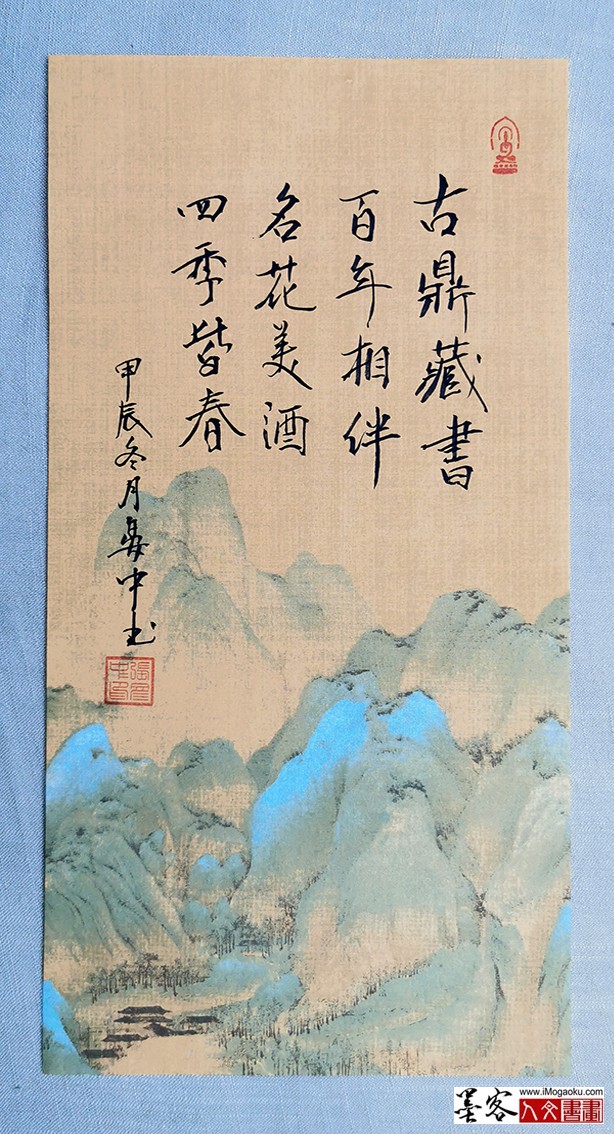 古鼎藏書
百年相伴
名花美酒
四季皆春
甲辰冬月晏中书
墨客
www.iMogaoku.com
人文書畫